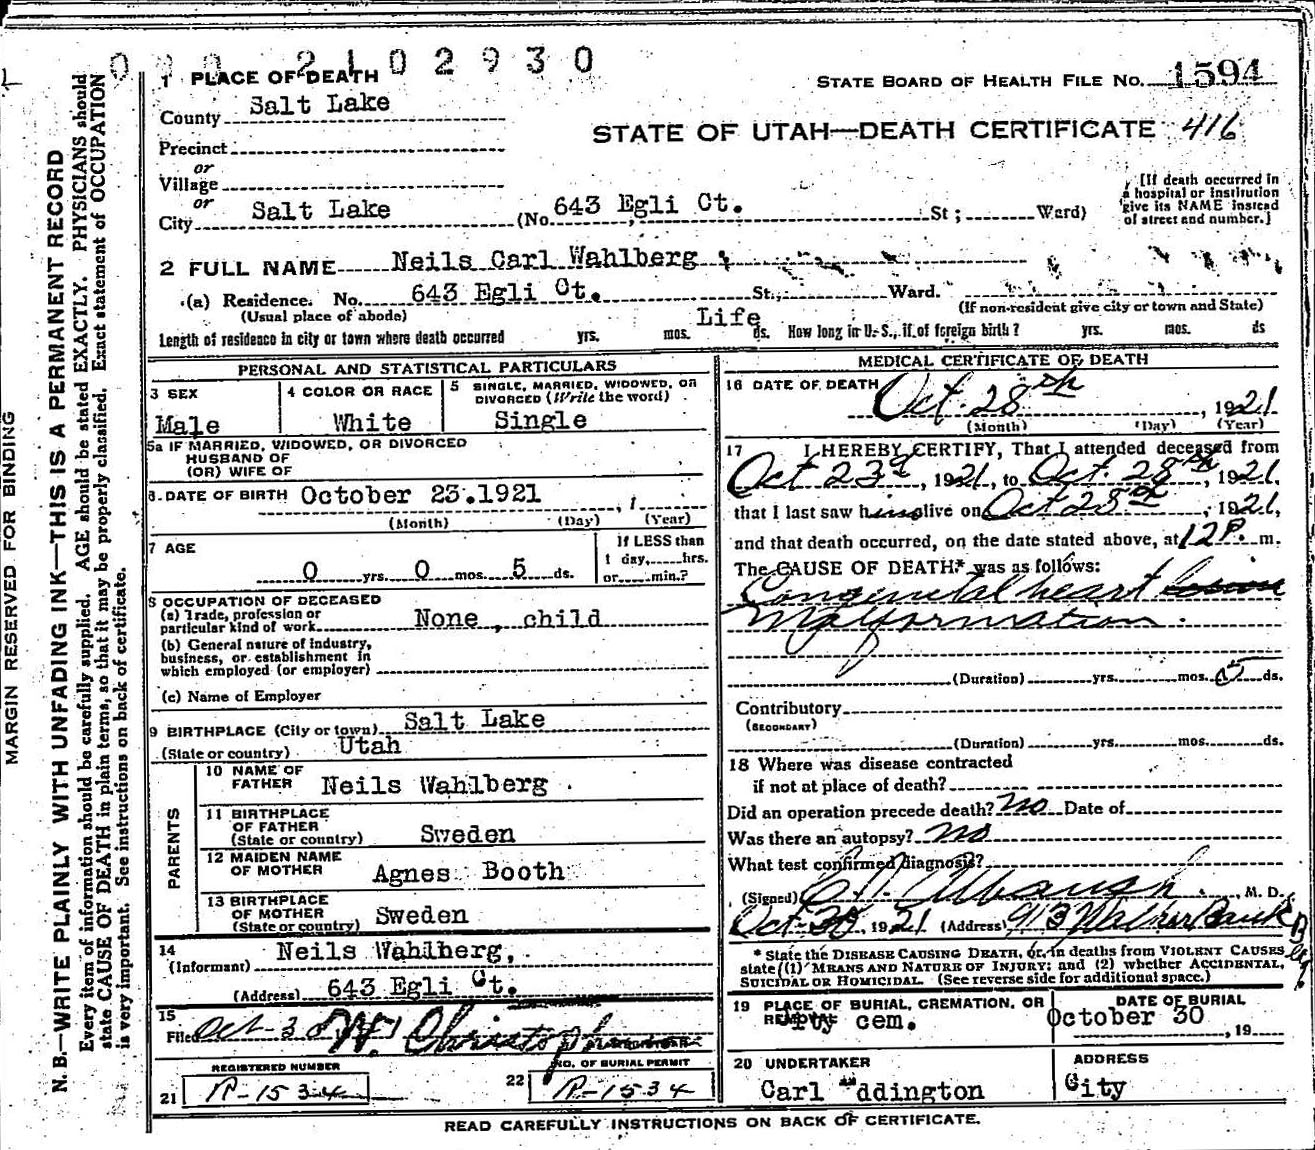 0002102930
1 PLACE OF DEATH
STATE BOARD OF HEALTH FILE NO. 1594
County Salt Lake
STATE OF UTAH—DEATH CERTIFICATE 416
Precinct
or
Village
or
City Salt Lake (No. 643 Egli Ct. St; Ward)
[If death occurred in a hospital or institution give its NAME instead of street and number.]
2 FULL NAME Neils Carl Wahlberg
(a) Residence. No. 643 Egli Ct. St., Ward.
(Usual place of abode) (If non-resident give city or town and State)
Length of residence in city or town where death occurred yrs. mos. Life ds. How long in U. S., if of foreign birth? yrs. mos. ds
PERSONAL AND STATISTICAL PARTICULARS
3 SEX Male
4 COLOR OR RACE White
5 SINGLE, MARRIED, WIDOWED, OR DIVORCED (Write the word) Single
5a IF MARRIED, WIDOWED, OR DIVORCED
HUSBAND OF
(OR) WIFE OF
6. DATE OF BIRTH October 23.1921
(Month) (Day) (Year)
7 AGE
0 yrs. 0 mos. 5 ds.
If LESS than
1 day, hrs.
or min.?
8 OCCUPATION OF DECEASED
(a) Trade, profession or
particular kind of work None, child
(b) General nature of industry,
business, or establishment in
which employed (or employer)
(c) Name of Employer
9 BIRTHPLACE (City or town) Salt Lake
(State or country) Utah
PARENTS
10 NAME OF
FATHER Neils Wahlberg.
11 BIRTHPLACE
OF FATHER
(State or country) Sweden
12 MAIDEN NAME
OF MOTHER Agnes Booth
13 BIRTHPLACE
OF MOTHER
(State or country) Sweden
14
(Informant) Neils Wahlberg,
(Address) 643 Egli Ct.
15
Filed Oct-30
REGISTERED NUMBER
21 R-1534
NO. OF BURIAL PERMIT
22 R-1534
MEDICAL CERTIFICATE OF DEATH
16 DATE OF DEATH Oct. 28th, 1921
(Month) (Day) (Year)
17 I HEREBY CERTIFY, That I attended deceased from
Oct 23d, 1921, to Oct. 28th, 1921,
that I last saw him alive on Oct 28th, 1921,
and that death occurred, on the date stated above, at 12 P. m.
The CAUSE OF DEATH* was as follows:
Congenital heart
Malformation.
(Duration) yrs. mos. 5 ds.
Contributory
(SECONDARY)
(Duration) yrs. mos. ds.
18 Where was disease contracted
if not at place of death?
Did an operation precede death? no Date of
Was there an autopsy? no
What test confirmed diagnosis?
(Signed) M. D.
Oct-30, 1921 (Address) 913 Walker Bank Bldg.
* State the DISEASE CAUSING DEATH, or, in deaths from VIOLENT CAUSES
state (1) MEANS AND NATURE OF INJURY; and (2) whether ACCIDENTAL,
SUICIDAL OR HOMICIDAL. (See reverse side for additional space.)
19 PLACE OF BURIAL, CREMATION, OR
REMOVAL cem.
DATE OF BURIAL
October 30, 19
20 UNDERTAKER
Carl Addington
ADDRESS
City
READ CAREFULLY INSTRUCTIONS ON BACK OF CERTIFICATE.
MARGIN RESERVED FOR BINDING
N. B.—WRITE PLAINLY WITH UNFADING INK—THIS IS A PERMANENT RECORD
Every item of information should be carefully supplied. AGE should be stated EXACTLY. PHYSICIANS should
state CAUSE OF DEATH in plain terms, so that it may be properly classified. Exact statement of OCCUPATION
is very important. See instructions on back of certificate.